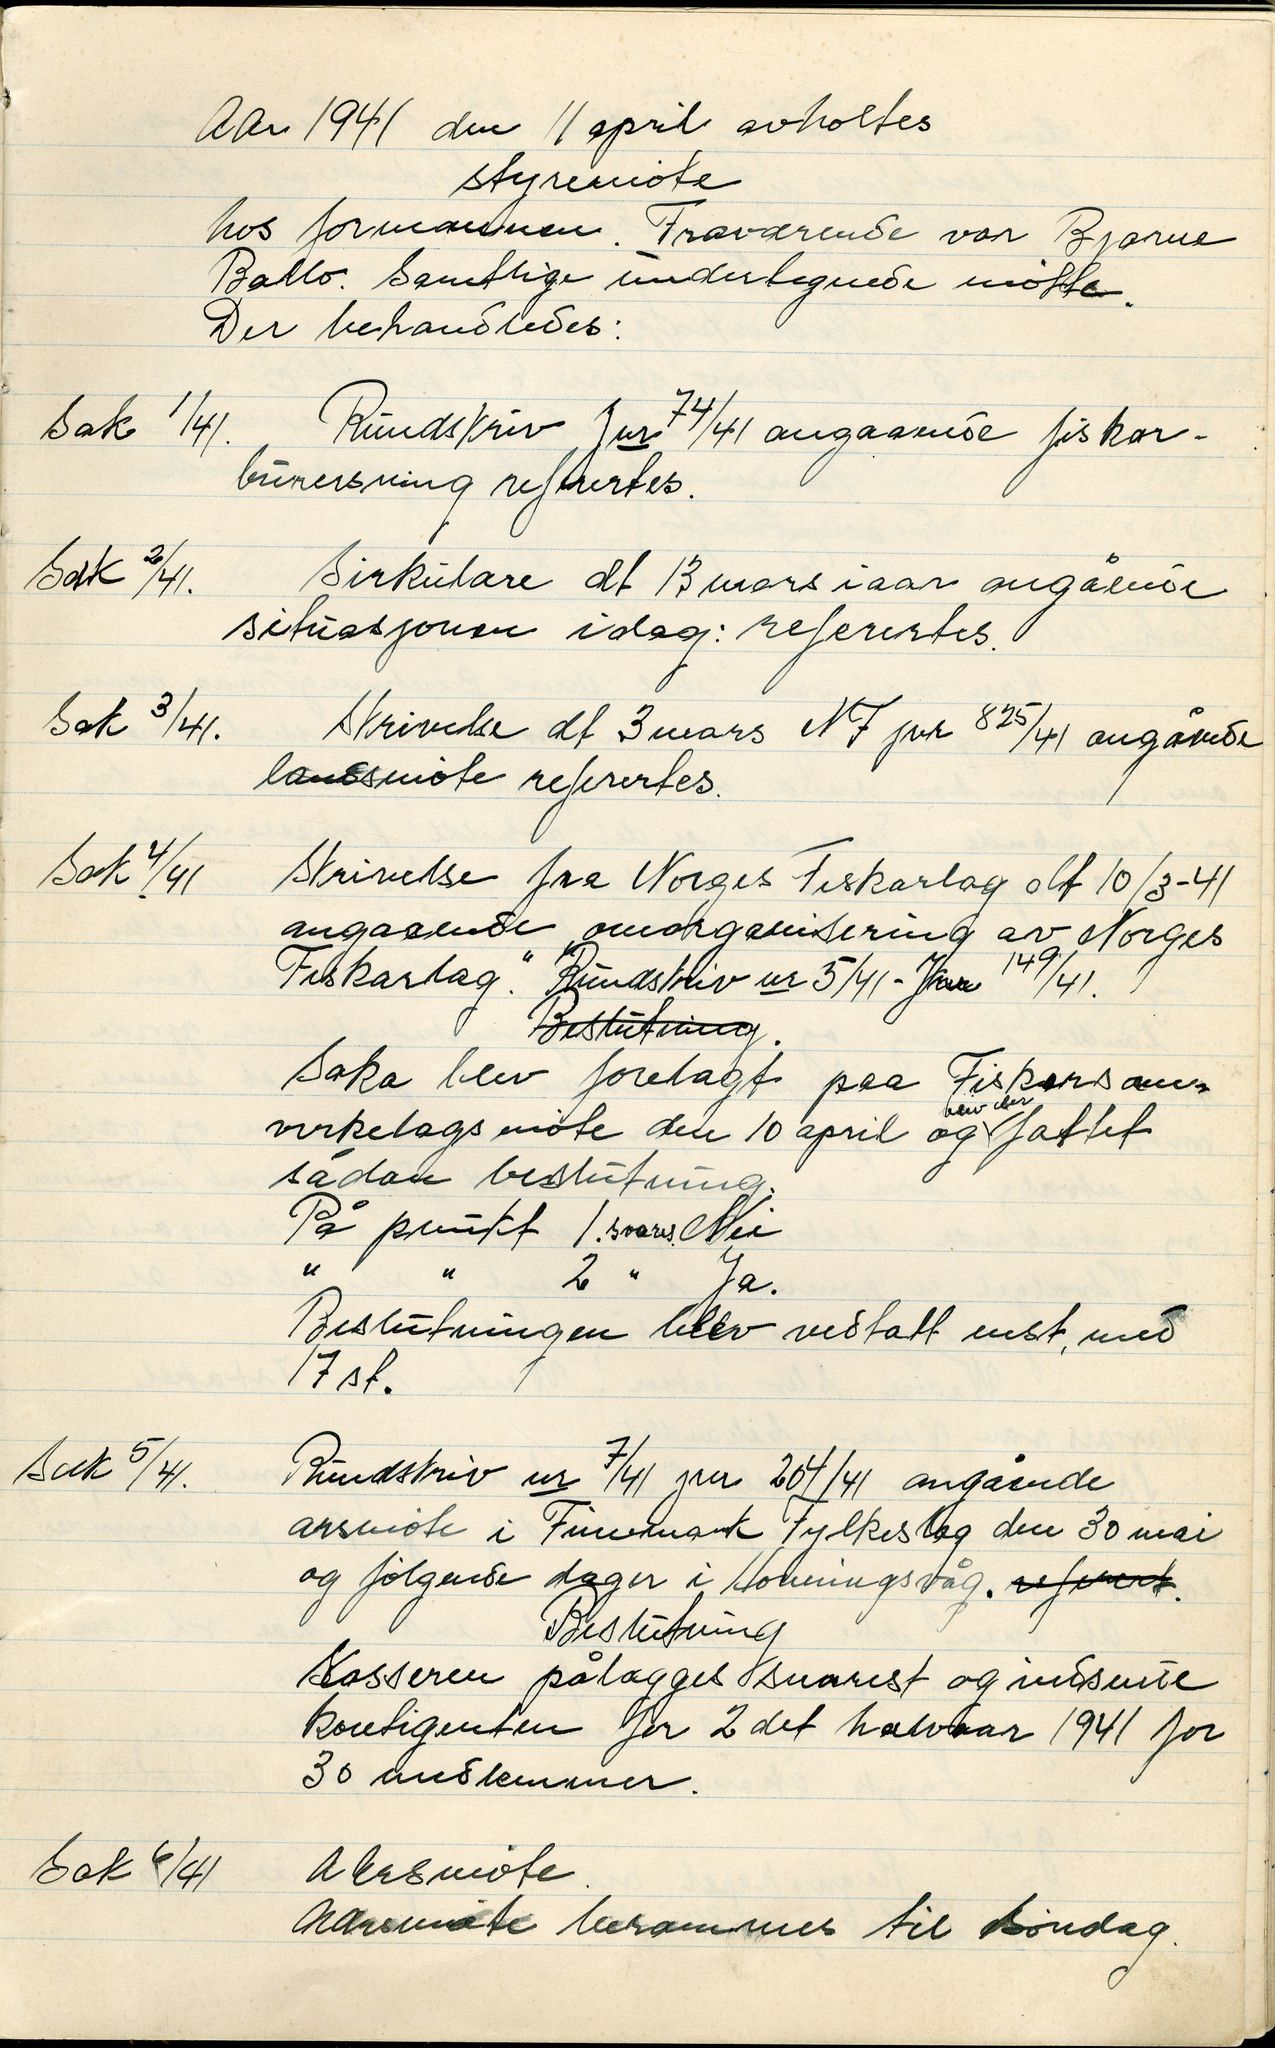 Aar 1941 den 11 april avholtes
styremöte
hos formannen. Fraværende var Bjarne
Ballo. Samtlige undertegnede mötte.
Der behandledes:
Sak 1/41. Rundskriv Jnr 74/41 angaaende fiskar-
referertes.
Sak 2/41. Sirkulare dt 13 mars iaar angående
situasjonen idag: referertes.
Sak 3/41. Skrivelse dt 3 mars NF jnr 825/41 angående
landsmöte referertes.
Sak 4/41 Skrivelse fra Norges Fiskarlag dt 10/3-41
angaaende omorganisering av Norges
Fiskarlag." "Rundskriv nr 5/41 - Jnr 149/41.
Beslutning.
Saka blev forelagt paa Fiskersam-
virkelagsmöte den 10 april og blev der fattet
sådan beslutning.
På punkt 1. svares. Nei
" " 2 " Ja.
Beslutningen blev vedtatt enst, med
17 st.
Sak 5/41. Rundskriv nr 7/41 jnr 204/41 angående
arsmöte i Finnmark Fylkeslag den 30 mai
og fölgende dager i Honningsvåg. referert.
Beslutning
Kasseren pålegges snarest og indsende
kontigenten for 2 det halvaar 1941 for
30 medlemmer.
Sak 6/41 Aarsmöte.
Aarsmöte berammes til söndag.